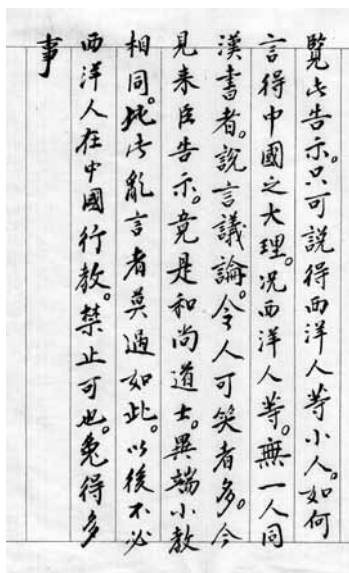 覽此告示。只可説得西洋人等小人。如何
言得中國之大理。况西洋人等。無一人同
漢書者。說言議論。令人可笑者多。今
見来臣告示。竟是和尚道士。異端小教
相同。比比亂言者莫過如此。以後不必
西洋人在中國行教。禁止可也。免得多
事